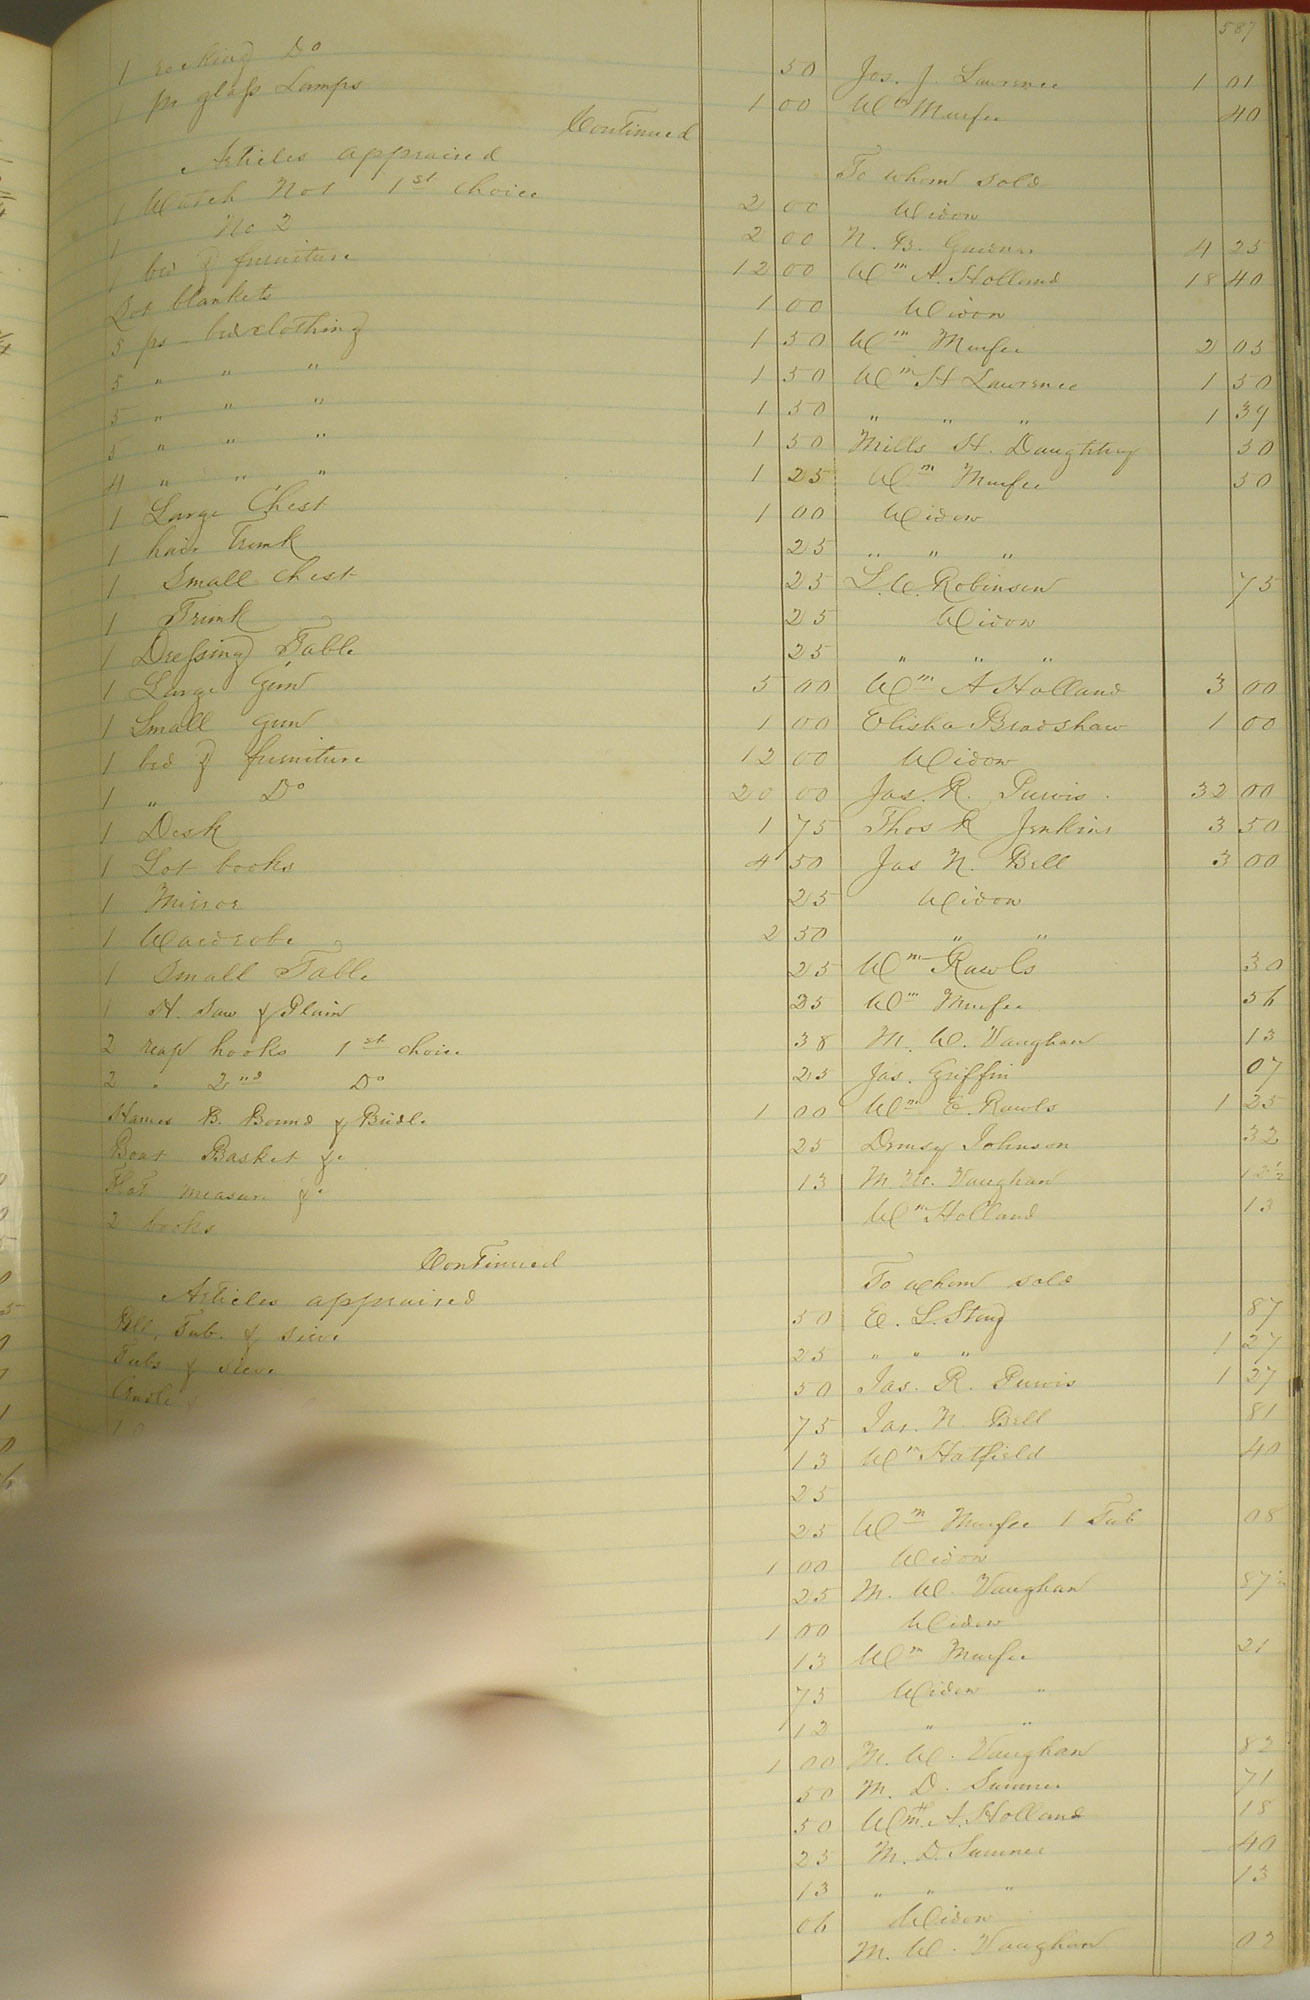 587
1 rocking Do 50 Jos. J. Lawrence 1 01
1 pr glass Lamps 1 00 Wm Murfee 40
Continued
Articles appraised To whom sold
1 Watch No 1 1st Choice 2 00 Widow
1 No 2 2 00 N. B. 4 25
1 bed & furniture 12 00 Wm A. Holland 18 40
Lot blankets 1 00 Widow
5 ps bedclothing 1 50 Wm Murfee 2 05
5 " " " 1 50 Wm H Lawrence 1 50
5 " " " 1 50 " " " 1 39
5 " " " 1 50 Mills H. Daughtrey 50
4 " " " 1 25 Wm Murfee 50
1 Large Chest 1 00 Widow
1 hair Trunk 25 " " "
1 Small Chest 25 L. W. Robinson 75
1 Trunk 25 Widow
1 Dressing Table 25 " " "
1 Large Gun 5 00 Wm A Holland 3 00
1 Small gun 1 00 Elisha Bradshaw 1 00
1 bed & furniture 12 00 Widow
1 " Do 20 00 Jas. R. Purvis 32 00
1 Desk 1 75 Thos R Jenkins 3 50
1 Lot books 4 50 Jas N. Bell 3 00
1 Mirror 25 Widow
1 Wardrobe 2 50 " "
1 Small Table 25 Wm Rawls 30
1 H. Saw & Plain 25 Wm Murfee 56
2 reap hooks 1st choice 38 M. W. Vaughan 13
2 " 2nd Do 25 Jas. Griffin 07
Hames B. Bound & Bridle 1 00 Wm E. Rawls 1 25
Boat Basket &c 25 Demsy Johnson 32
Flat measure &c 13 M. W. Vaughan 12½
2 books Wm Holland 13
Continued
Articles appraised To whom sold
Bll, Tub. & sieve 50 E. L. 87
Tubs & sieve 25 " " " 1 27
50 Jas. R. Purvis 1 37
75 Jas. N. Bell 81
13 Wm Hatfield 40
25
25 Wm Murfee 1 Tub 08
1 00 Widow
25 M. W. Vaughan 87½
1 00 Widow
13 Wm Murfee 21
75 Widow "
12 " "
1 00 M. W. Vaughan 82
50 M. D. Sumner 71
50 Wm. A. Holland 18
25 M. D. Sumner 40
13 " " " 13
06 Widow
M. W. Vaughan 02